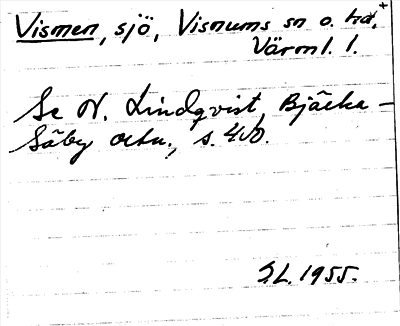 Vismen, sjö, Visnums sn o. hd,
Värml. l.
Se N. Lindqvist, Bjärka-
Säby ortn., s. 410.
S.L. 1955.